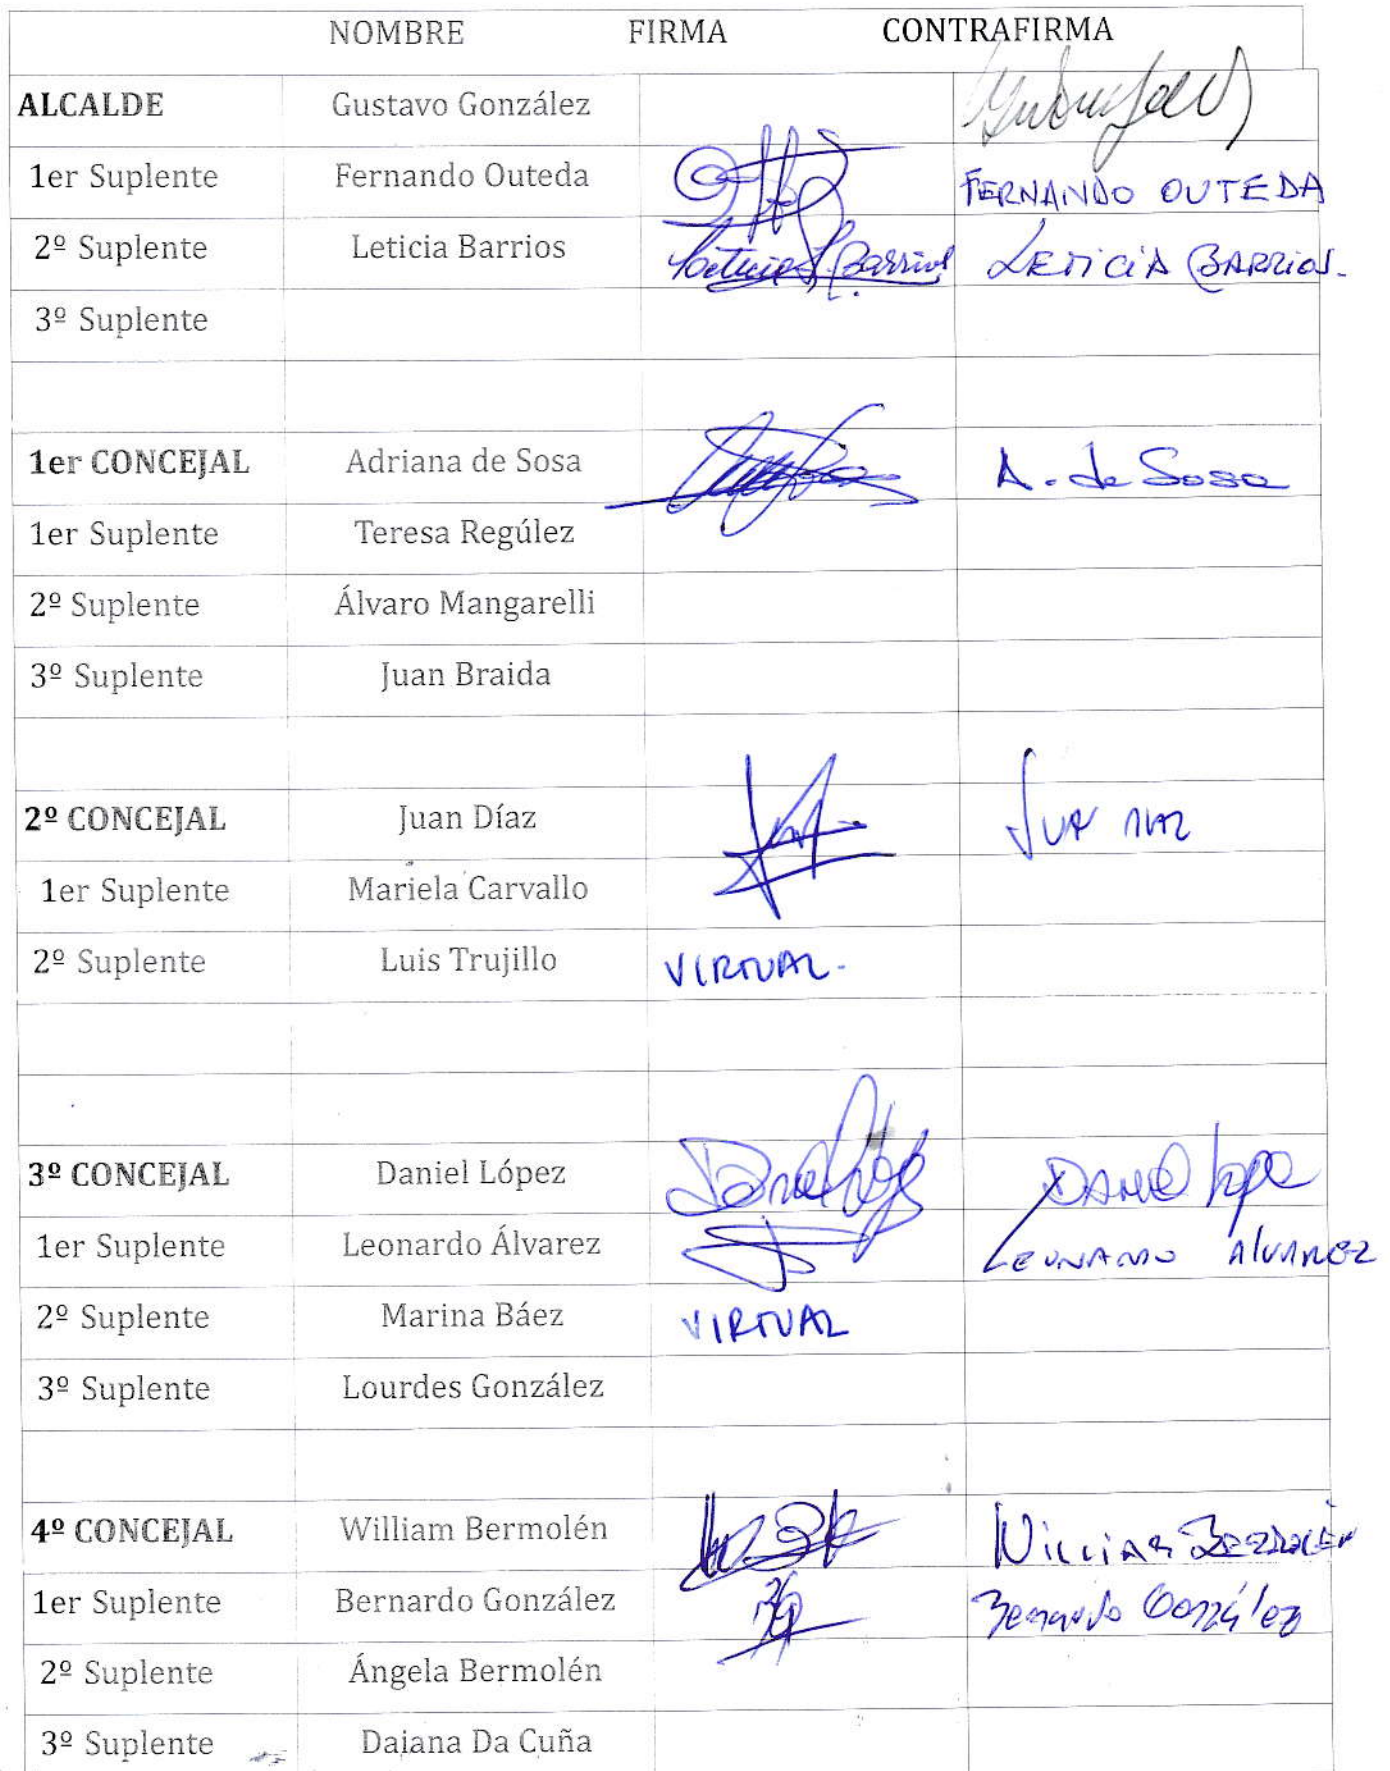 NOMBRE FIRMA CONTRAFIRMA
ALCALDE Gustavo González
1er Suplente Fernando Outeda FERNANDO OUTEDA
2º Suplente Leticia Barrios Leticia S. Barrios LETICIA BARRIOS.
3º Suplente
1er CONCEJAL Adriana de Sosa A. de Sosa
1er Suplente Teresa Regúlez
2º Suplente Álvaro Mangarelli
3º Suplente Juan Braida
2º CONCEJAL Juan Díaz
1er Suplente Mariela Carvallo
2º Suplente Luis Trujillo VIRTUAL.
3º CONCEJAL Daniel López DANIEL Lope
1er Suplente Leonardo Álvarez LEONARDO AlVAREZ
2º Suplente Marina Báez VIRTUAL
3º Suplente Lourdes González
4º CONCEJAL William Bermolén WILLIAM BERMOLÉN
1er Suplente Bernardo González Bernardo González
2º Suplente Ángela Bermolén
3º Suplente Daiana Da Cuña